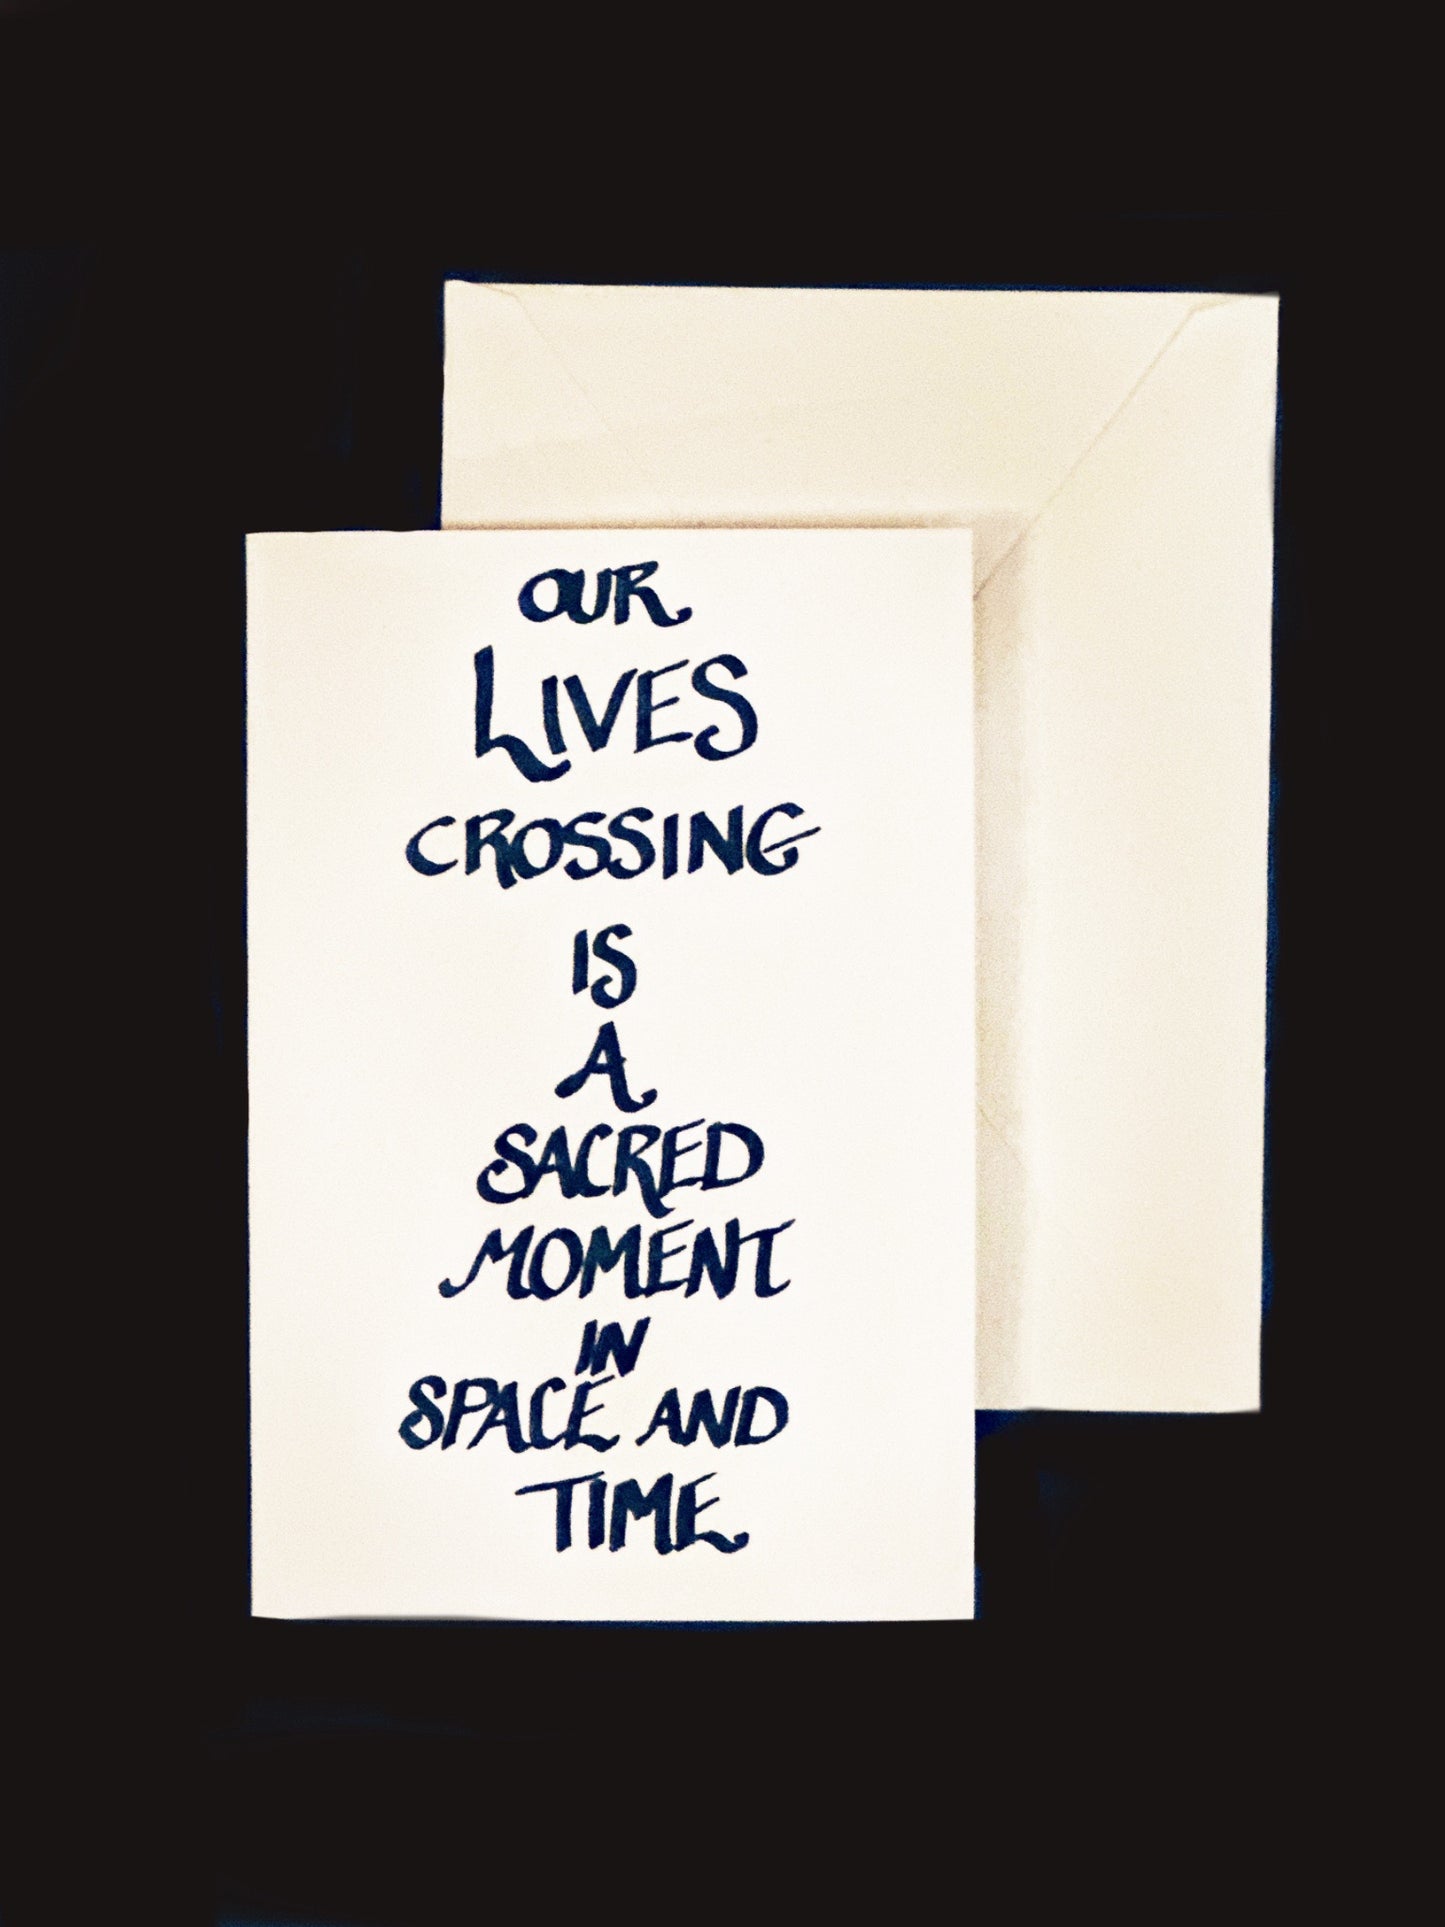 OUR
LIVES
CROSSING
IS
A
SACRED
MOMENT
IN
SPACE AND
TIME